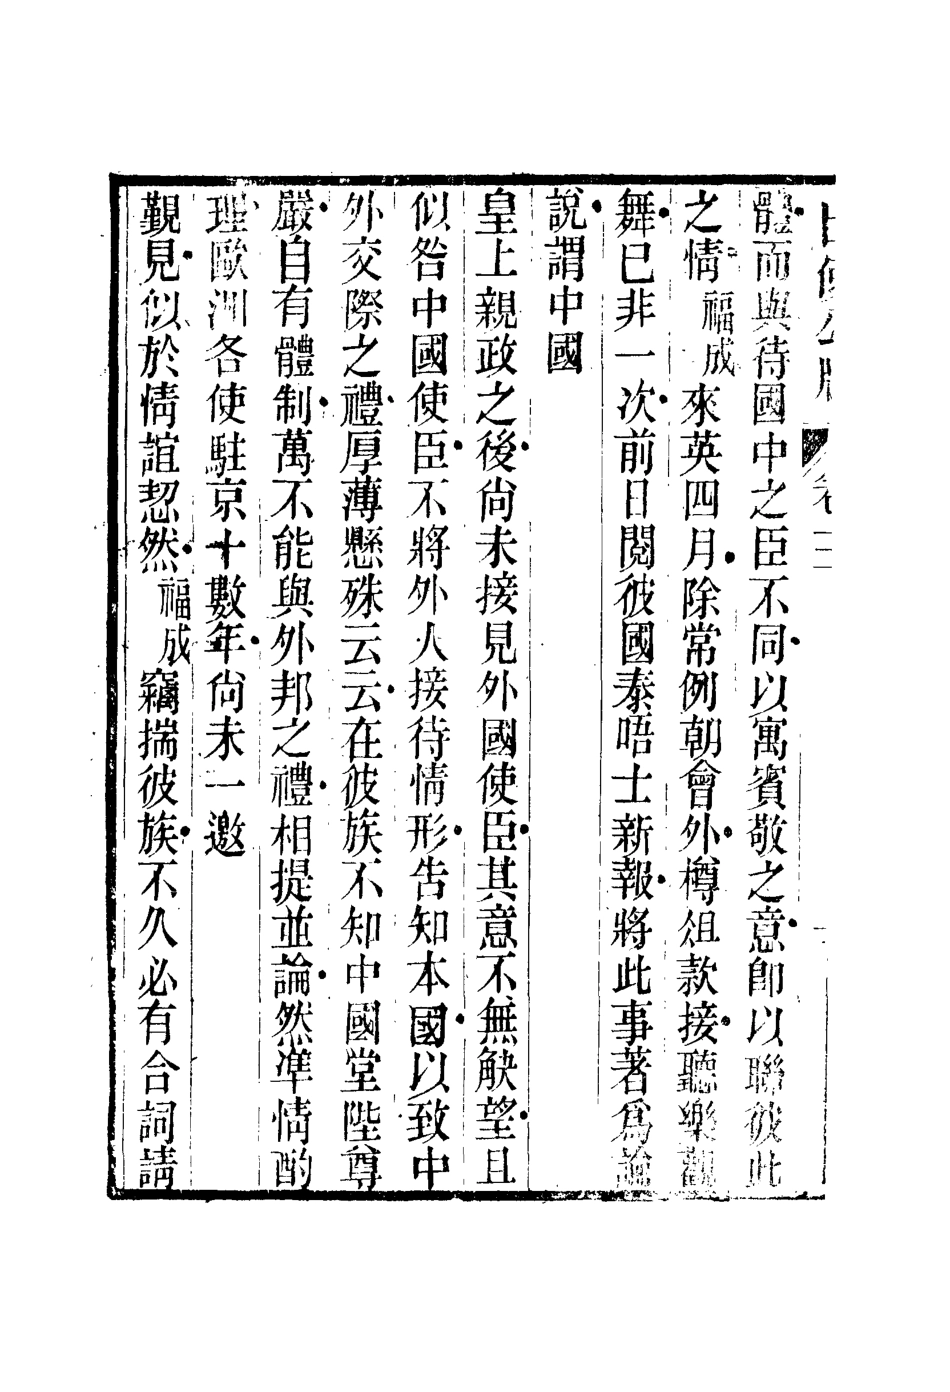 體而與待國中之臣不同以寓賓敬之意卽以聯彼此
之情福成來英四月除常例朝會外樽俎款接聽樂觀
舞已非一次前日閱彼國泰唔士新報將此事著爲論
說謂中國
皇上親政之後尙未接見外國使臣其意不無觖望且
似咎中國使臣不將外人接待情形吿知本國以致中
外交際之禮厚薄懸殊云云在彼族不知中國堂陛尊
嚴自有體制萬不能與外邦之禮相提並論然準情酌
理歐洲各使駐京十數年尙未一邀
覲見似於情誼恝然福成竊揣彼族不久必有合詞請